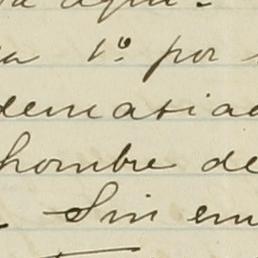 aquí.
1º por
demasiad
hombre de
Sin em